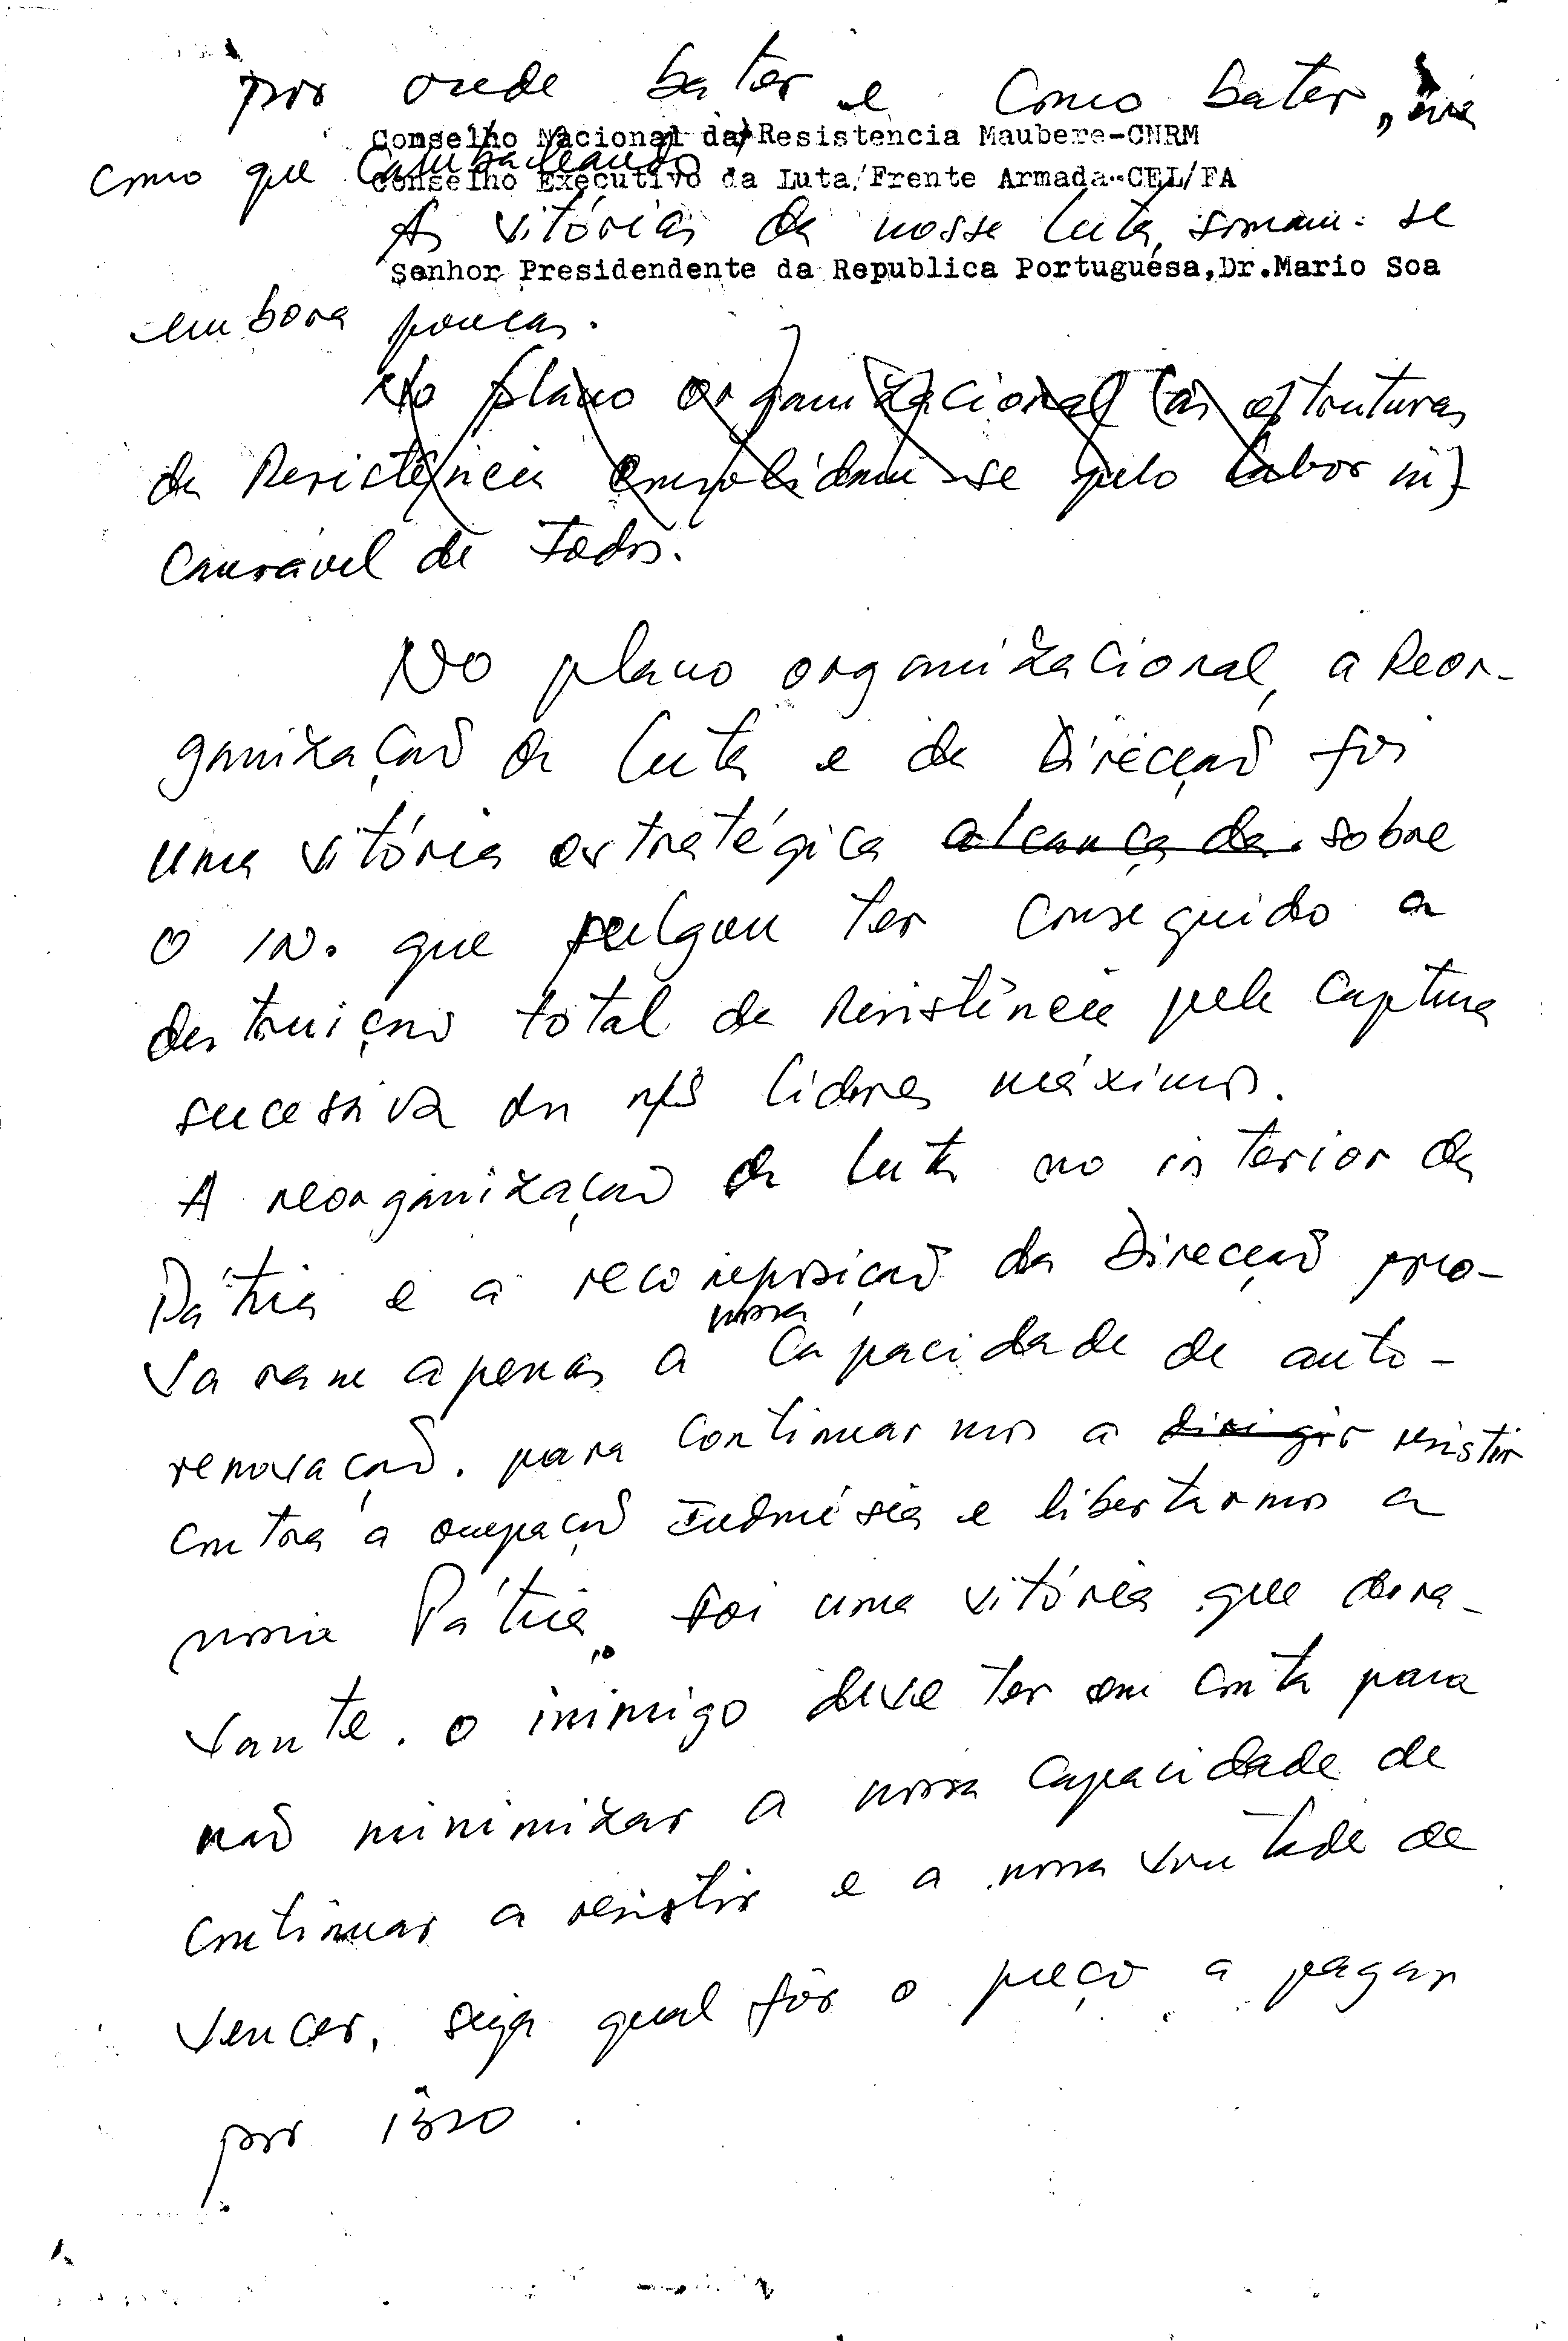 por onde bater e como bater,
Conselho Nacional da Resistencia Maubere-CNRM
como que cambaleando
Conselho Executivo da Luta/Frente Armada-CEL/FA
As vitórias da nossa luta, somam-se
Senhor Presidendente da Republica Portuguesa,Dr.Mario Soa
embora poucas.
No plano organizacional (as estruturas
da Resistência consolidam-se pelo labor in)
cansável de todos.
No plano organizacional, a Reor-
ganização da luta e da Direcção foi
uma vitória estratégica alcançada sobre
o IN. que julgou ter conseguido a
destruição total da Resistência pela captura
sucessiva dos n/s líderes máximos.
A reorganização da luta no interior da
Pátria e a recomposição da Direcção pro-
varam apenas a nossa capacidade de auto-
renovação. para continuarmos a dirigir resistir
contra a ocupação Indonésia e libertarmos a
nossa Pátria. Foi uma vitória que dora-
vante. o inimigo deve ter em conta para
não minimizar a nossa capacidade de
continuar a resistir e a nossa vontade de
vencer, seja qual fôr o preço a pagar
por isso.